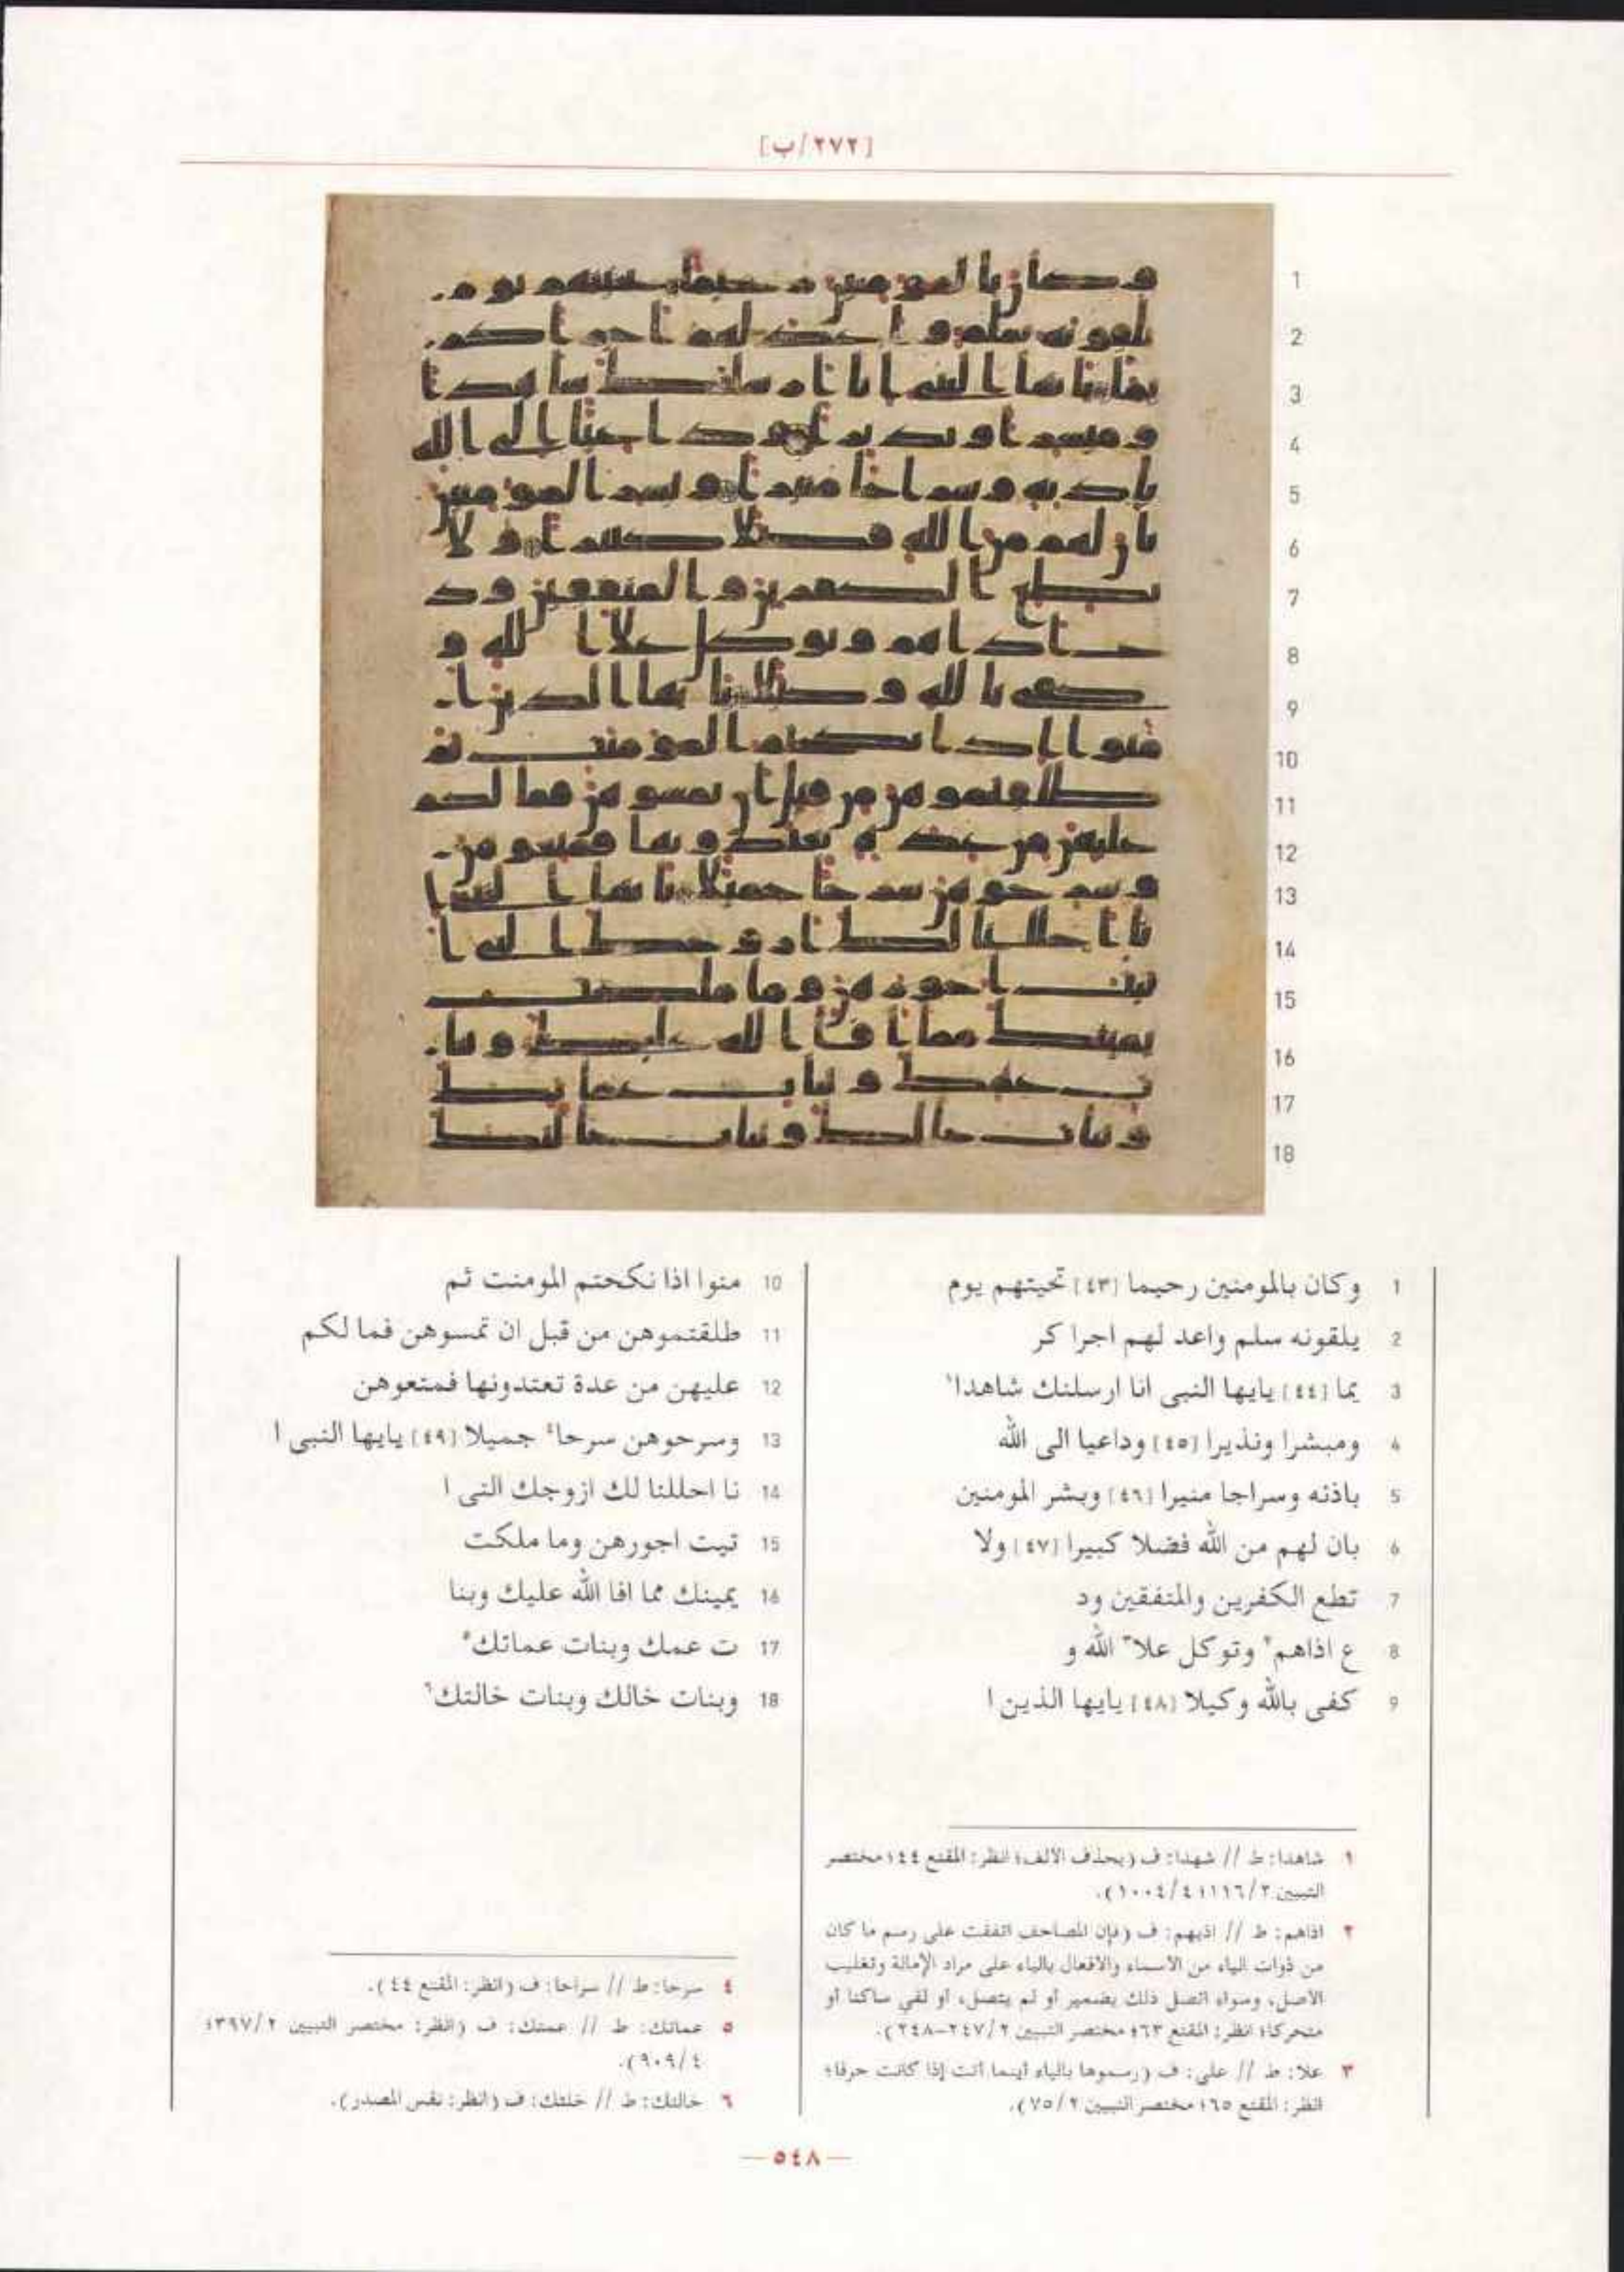 [٢٧٢/ب]
1 وكان بالمومنين رحيما [٤٣] تحيتهم يوم
2 يلقونه سلم واعد لهم اجرا كر
3 يما [٤٤] يايها النبى انا ارسلنك شاهدا١
4 ومبشرا ونذيرا [٤٥] وداعيا الى الله
5 باذنه وسراجا منيرا [٤٦] وبشر المومنين
6 بان لهم من الله فضلا كبيرا [٤٧] ولا
7 تطع الكفرين والمنفقين ود
8 ع اذاهم٢ وتوكل علا٣ الله و
9 كفى بالله وكيلا [٤٨] يايها الذين ا
10 منوا اذا نكحتم المومنت ثم
11 طلقتموهن من قبل ان تمسوهن فما لكم
12 عليهن من عدة تعتدونها فمتعوهن
13 وسرحوهن سرحا٤ جميلا [٤٩] يايها النبى ا
14 نا احللنا لك ازوجك التى ا
15 تيت اجورهن وما ملكت
16 يمينك مما افا الله عليك وبنا
17 ت عمك وبنات عماتك٥
18 وبنات خالك وبنات خالتك٦
١ شاهدا: ط // شهدا: ف (بحذف الالف؛ انظر: المقنع ٤٤؛ مختصر
التبيين ١١١٦/٣؛ ١٠٠٤/٤).
٢ اذاهم: ط // اذيهم: ف (فإن المصاحف اتفقت على رسم ما كان
من ذوات الياء من الأسماء والأفعال بالياء على مراد الإمالة وتغليب
الأصل، وسواء اتصل ذلك بضمير أو لم يتصل، أو لقي ساكنا أو
متحركا؛ انظر: المقنع ٦٣؛ مختصر التبيين ٢٤٧/٢-٢٤٨).
٣ علا: ط // على: ف (رسموها بالياء أينما أتت إذا كانت حرفا؛
انظر: المقنع ٦٥؛ مختصر التبيين ٧٥/٢).
٤ سرحا: ط // سراحا: ف (انظر: المقنع ٤٤).
٥ عماتك: ط // عمتك: ف (انظر: مختصر التبيين ٣٩٧/٢؛
٩٠٩/٤).
٦ خالتك: ط // خلتك: ف (انظر: نفس المصدر).
— ٥٤٨ —